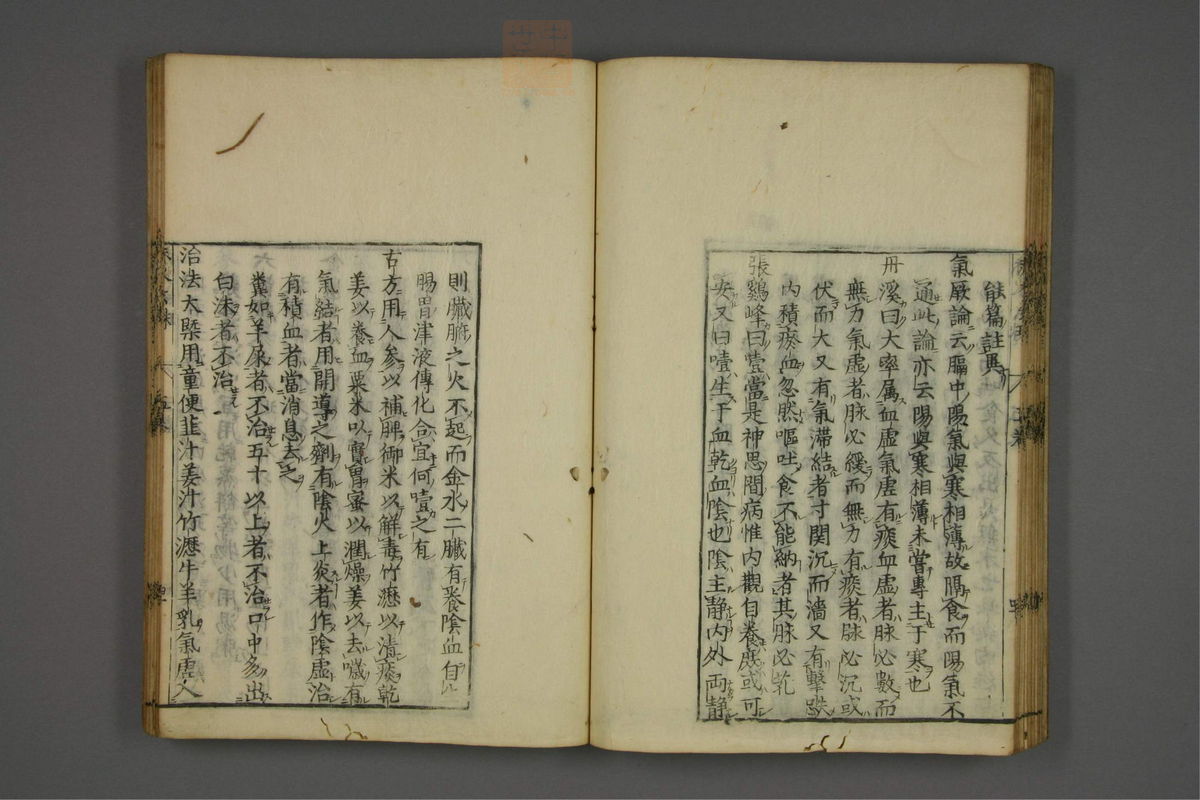 能篇註與
氣厥論云膈中陽氣與寒相薄故隔食而陽氣不
通此論亦云陽與寒相薄未嘗專主于寒也
丹溪曰大率属血虚氣虚有痰血虚者脉必數而
無力氣虚者脉必緩而無力有痰者脉必沉或
伏而大又有氣滞結者寸関沉而濇又有擊跌
内積瘀血忽然嘔吐食不能納者其脉必芤
張鷄峰曰噎當是神思間病惟内觀自養庶或可
安又曰噎生于血乾血陰也陰主静内外両静
則臟腑之火不起而金水二臟有養陰血自
腸胃津液傳化合宜何噎之有
古方用人参以補脾御米以解毒竹瀝以清痰乾
姜以養血粟米以實胃蜜以潤燥姜以去噦有
氣結者用開導之劑有陰火上炎者作陰虚治
有積血者當消息去之
糞如羊屎者不治五十以上者不治口中多出
白沫者不治
治法大槩用童便韭汁姜汁竹瀝牛羊乳氣虚人